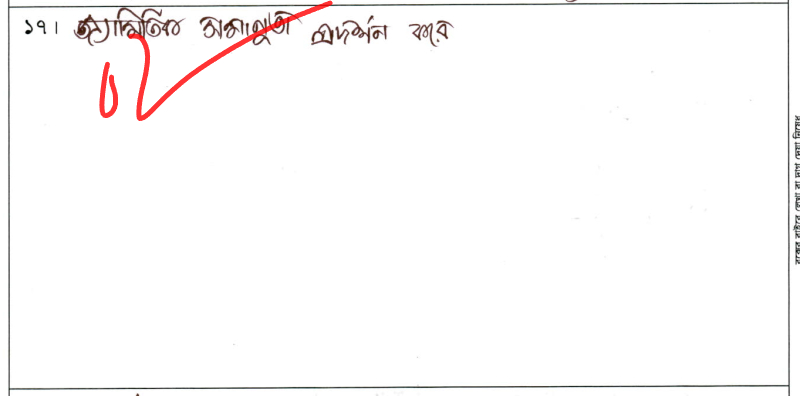 ১৭। জ্যামিতিক সমানুতা প্রদর্শন করে
বক্সের বাইরে লেখা বা দাগ দেয়া নিষেধ